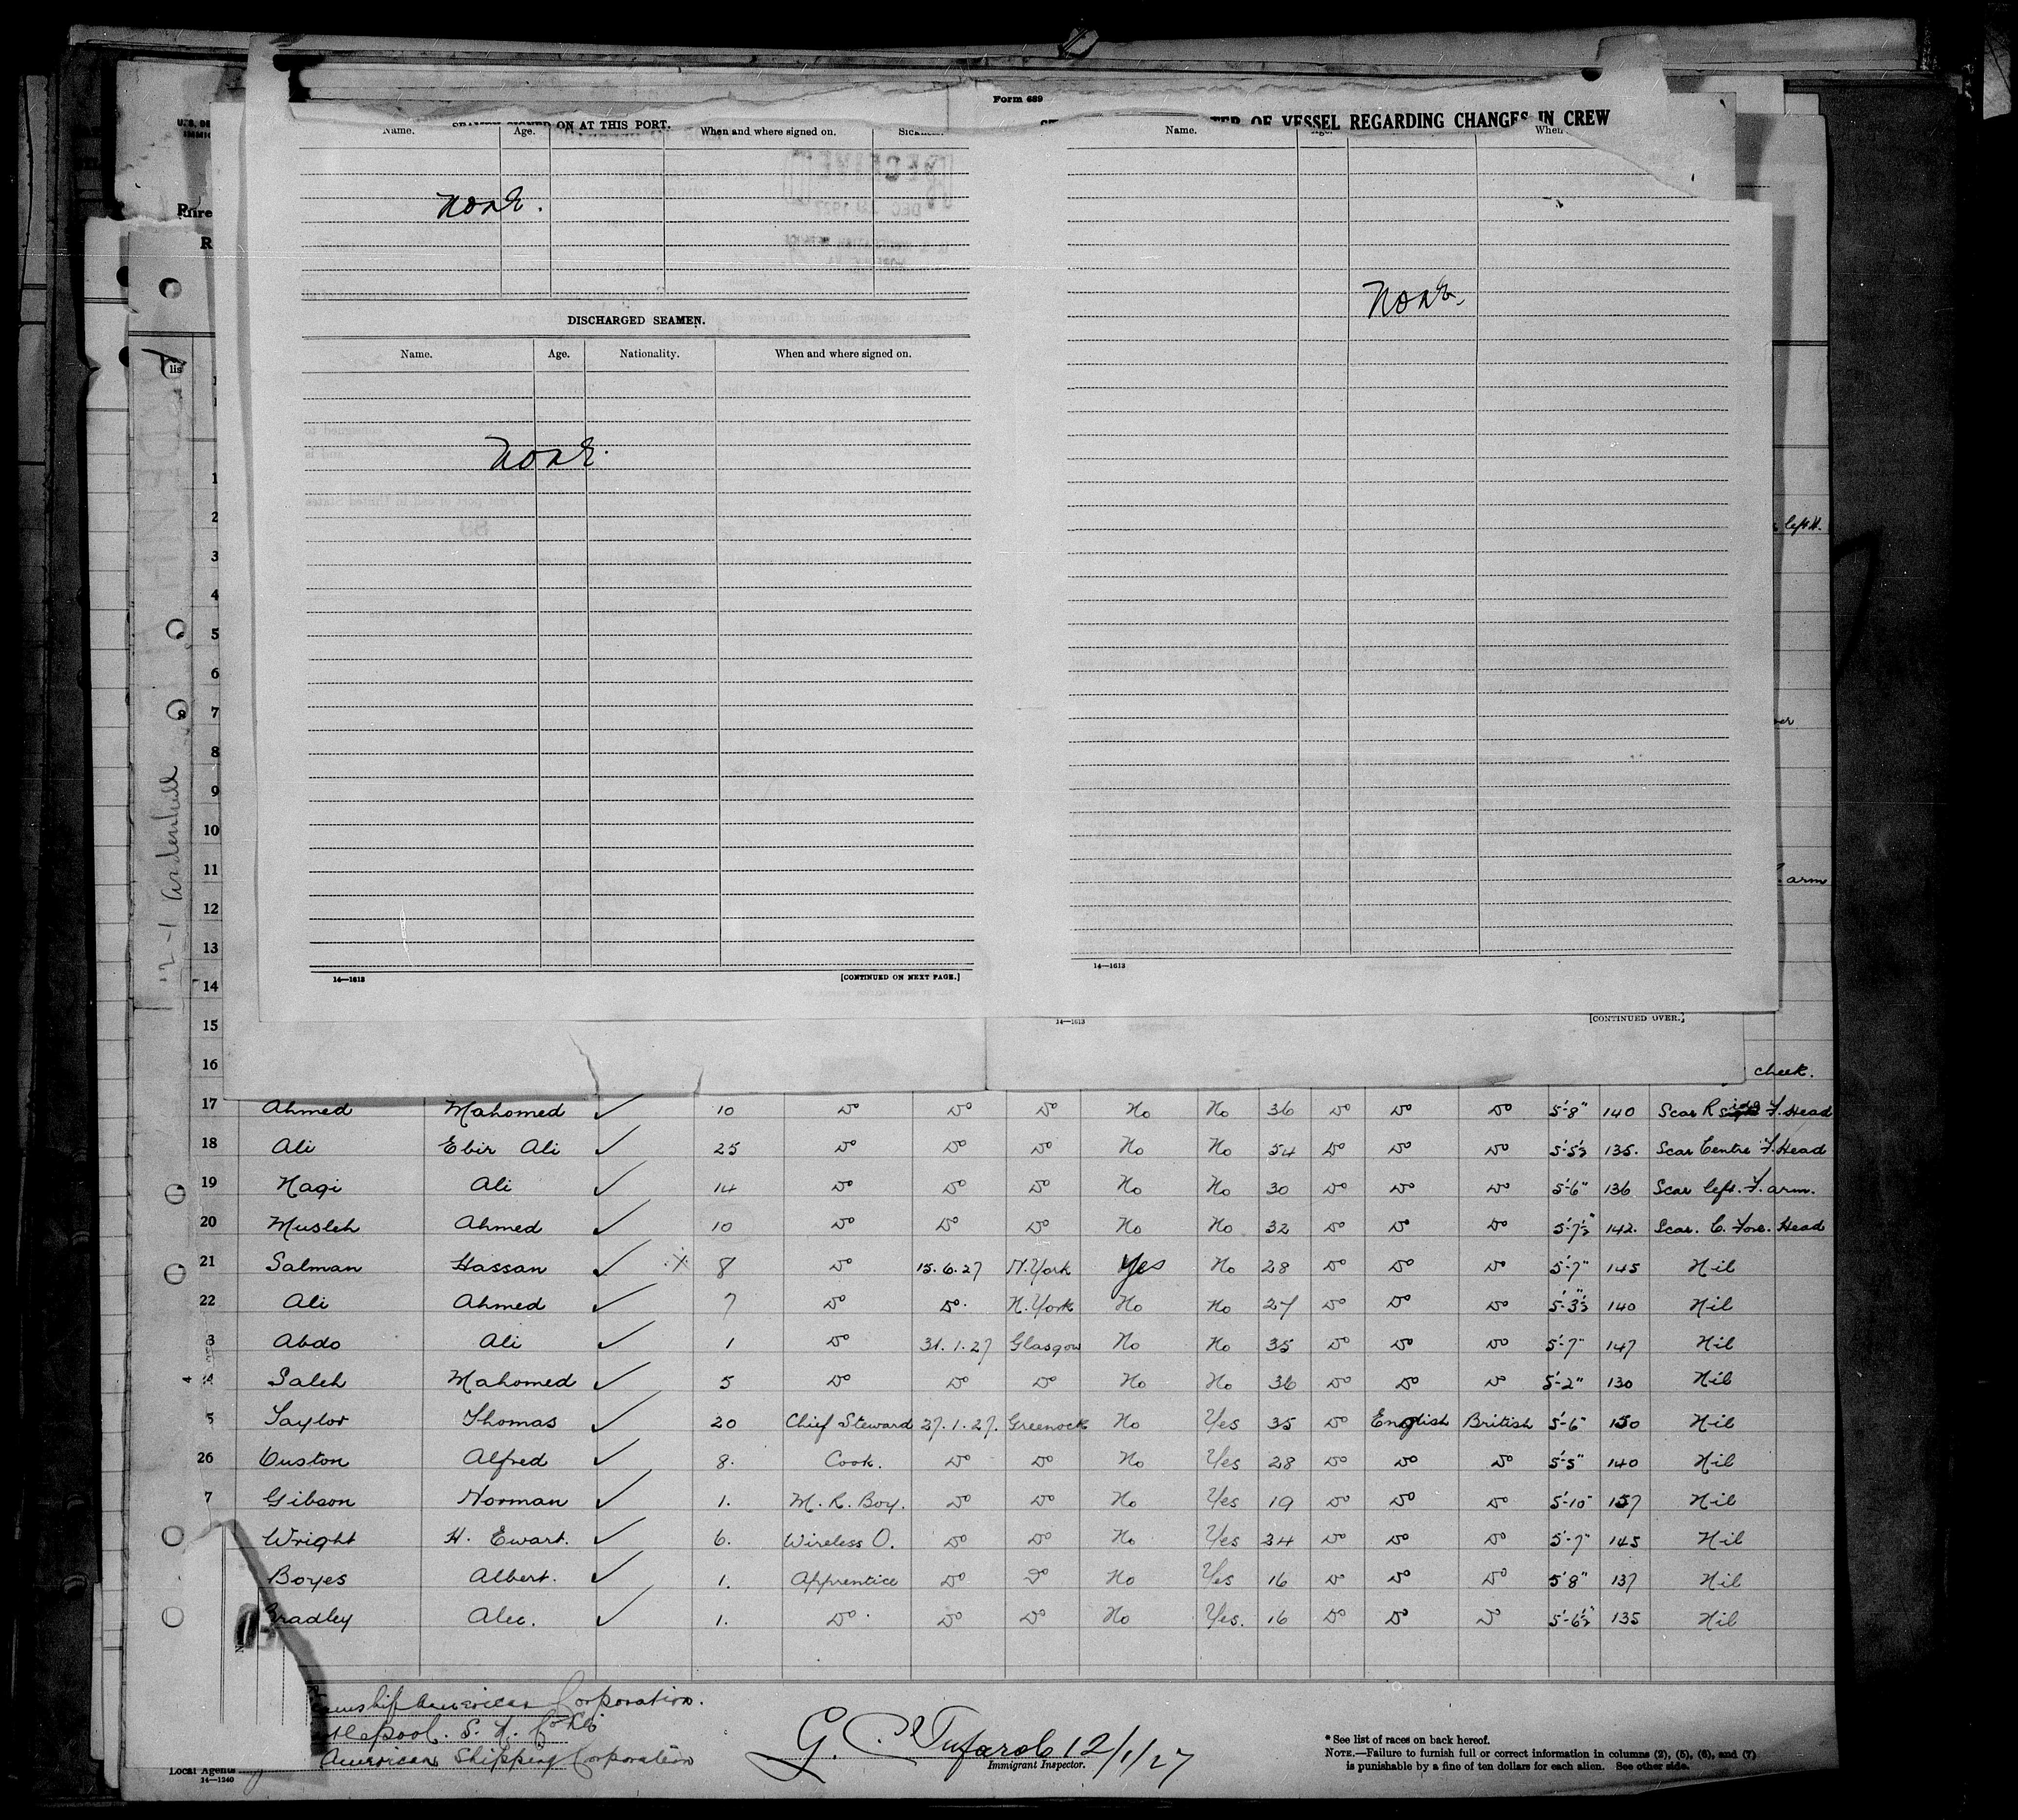 Form 689
SEAMEN SIGNED ON AT THIS PORT.
OF VESSEL REGARDING CHANGES IN CREW
Name. Age. When and where signed on.
Name. Age. When
None.
None.
DISCHARGED SEAMEN.
Name. Age. Nationality. When and where signed on.
None.
14—1613 [CONTINUED ON NEXT PAGE.]
14—1613
14—1613 [CONTINUED OVER.]
12-1 Ardenhall
lis
1
2
left H.
3
4
5
6
7
8
9
10
11
arm
12
13
14
15
16 cheek.
17 Ahmed Mahomed ✓ 10 Do Do Do No No 36 Do Do Do 5'-8" 140 Scar R side F. Head
18 Ali Ebir Ali ✓ 25 Do Do Do No No 54 Do Do Do 5'-5½ 135. Scar Centre F. Head
19 Nagi Ali ✓ 14 Do Do Do No No 30 Do Do Do 5'-6" 136 Scar left. F. arm.
20 Musleh Ahmed ✓ 10 Do Do Do No No 32 Do Do Do 5'-7½" 142. Scar. C. Fore. Head
21 Salman Hassan ✓ x 8 Do 15.6.27 N. York Yes No 28 Do Do Do 5'-7" 145 Nil
22 Ali Ahmed ✓ 7 Do Do. N. York No No 27 Do Do Do 5'-3½" 140 Nil
3 Abdo Ali ✓ 1 Do 31.1.27 Glasgow No No 35 Do Do Do 5'-7" 147 Nil
4 Saleh Mahomed ✓ 5 Do Do Do No No 36 Do Do Do 5'-2" 130 Nil
5 Taylor Thomas ✓ 20 Chief Steward 27.1.27. Greenock No Yes 35 Do English British 5'-6" 150 Nil
26 Ouston Alfred ✓ 8. Cook. Do Do No Yes 28 Do Do Do 5'-5" 140 Nil
7 Gibson Norman ✓ 1. M. R. Boy. Do Do No Yes 19 Do Do Do 5'-10" 157 Nil
Wright H. Ewart. ✓ 6. Wireless O. Do Do No Yes 34 Do Do Do 5'-7" 145 Nil
Boyes Albert. ✓ 1. Apprentice Do Do No Yes 16 Do Do Do 5'8" 137 Nil
Bradley Alec. ✓ 1. Do. Do Do No Yes. 16 Do Do Do 5'-6½" 135 Nil
American Corporation.
American Shipping Corporation
Local Agents
14—1240
12/1/27
Immigrant Inspector.
* See list of races on back hereof.
NOTE.—Failure to furnish full or correct information in columns (2), (5), (6), and (7)
is punishable by a fine of ten dollars for each alien. See other side.